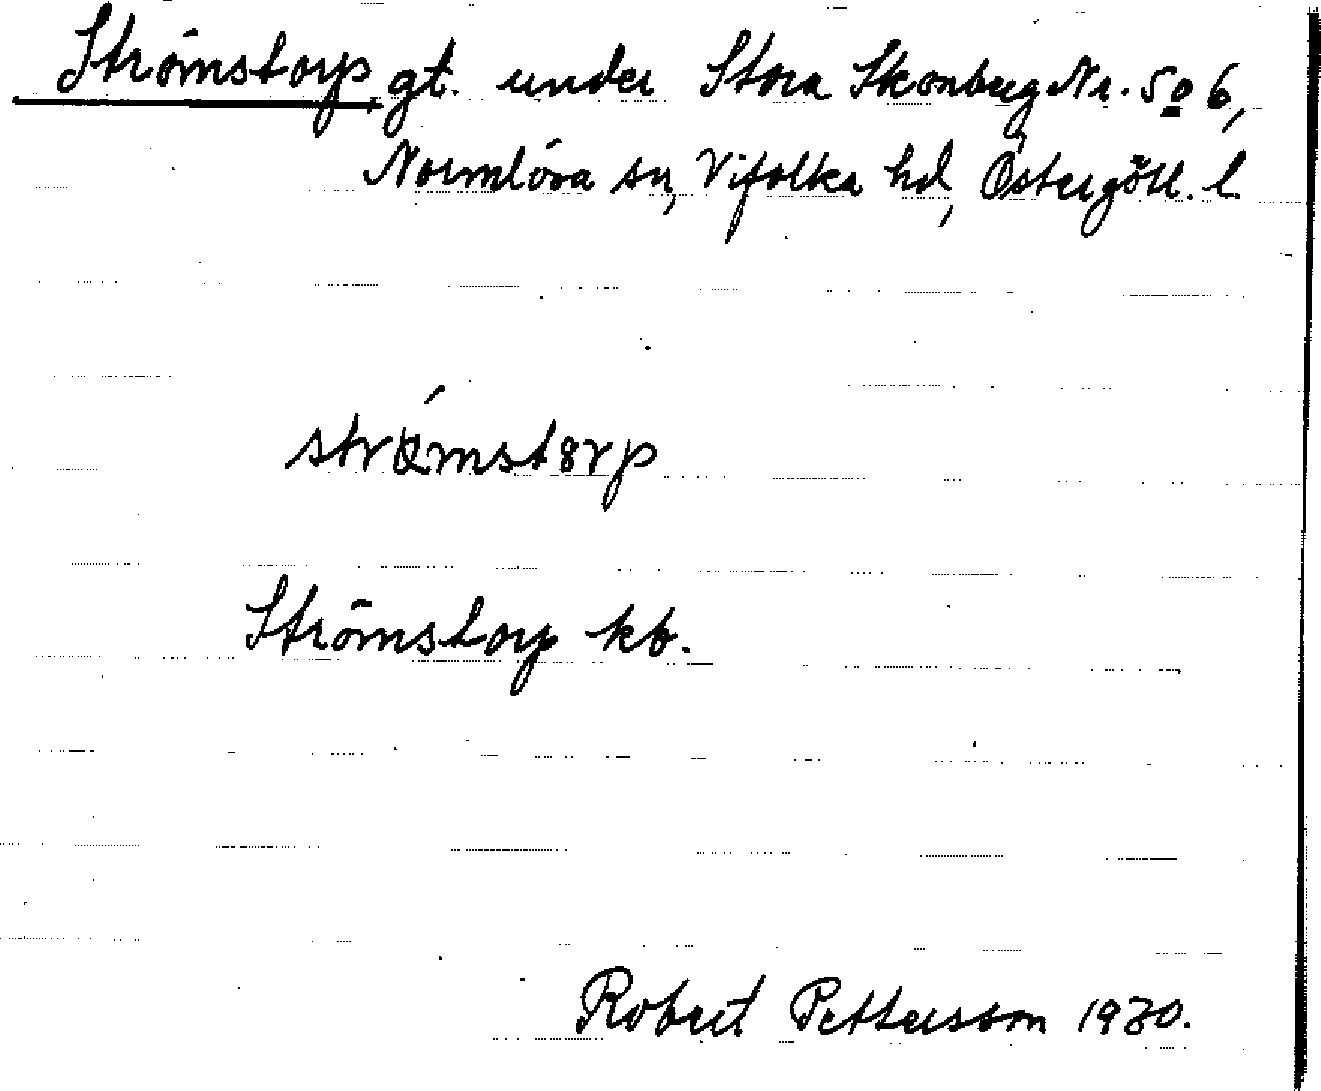 Strömstorp gt. under Stora Skonberg Nr. 5 o 6,
Normlösa sn, Vifolka hd, Östergötl. l
Strömstorp kb.
Robert Pettersson 1930.